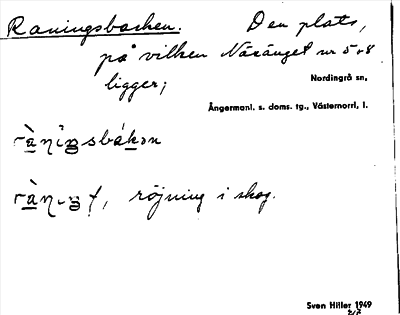 Raningsbacken. Den plats,
på vilken Näsänget nr 5 o 8
ligger;
Nordingrå sn,
Ångermanl. s. doms. tg., Västernorrl. l.
röjning i skog.
Sven Hiller 1949